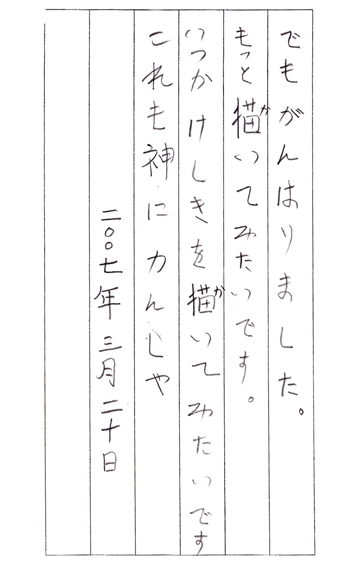 でもがんはりました。
もっと描かいてみたいです。
いつかけしきを描かいてみたいです
これも神にカんしゃ
二〇〇七年三月二十日